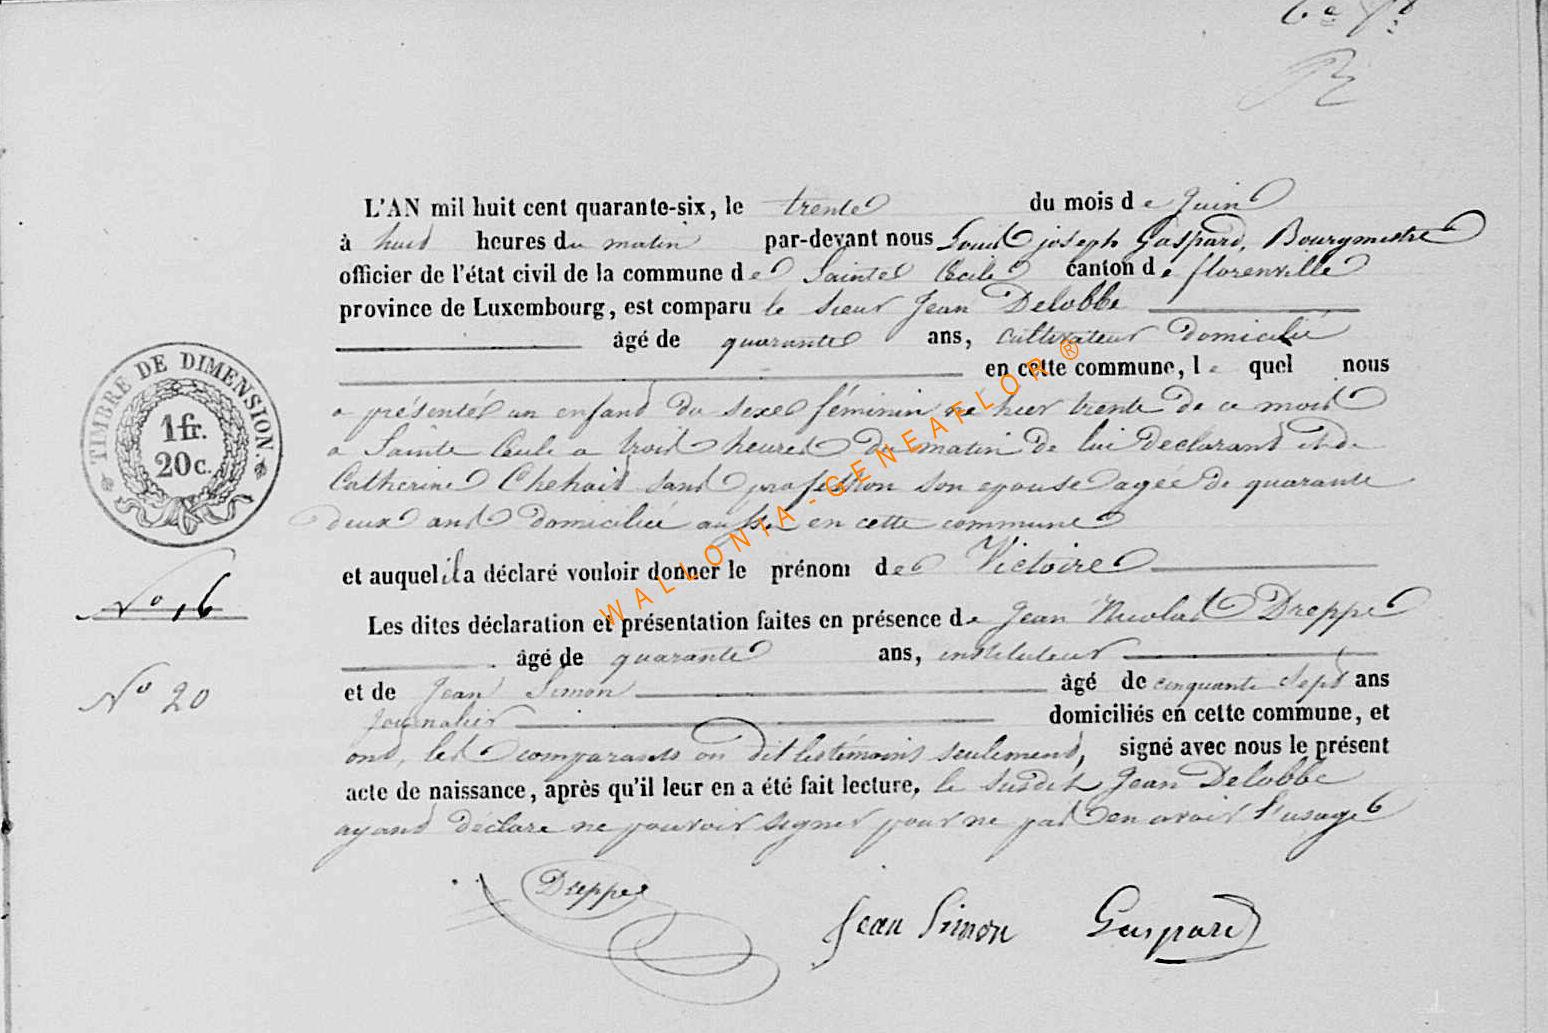 6e
L'AN mil huit cent quarante-six, le trente du mois de Juin
à huit heures du matin par-devant nous Louis joseph Gaspard, Bourgmestre
officier de l'état civil de la commune de Sainte Cécile canton de florenville
province de Luxembourg, est comparu le sieur Jean Delobbe
âgé de quarante ans, cultivateur domicilié
en cette commune, le quel nous
a présenté un enfand du sexe féminin né hier trente de ce mois
a Sainte Cécile a trois heures du matin de lui declarant et de
Catherine Chehois sans profession son epouse agée de quarante
deux ans domiciliée aussi en cette commune
et auquel il a déclaré vouloir donner le prénom de Victoire
Les dites déclaration et présentation faites en présence de Jean Nicolas Dreppe
âgé de quarante ans, instituteur
et de Jean Simon âgé de cinquante sept ans
journalier domiciliés en cette commune, et
ont, les comparants ou dit les témoins seulement, signé avec nous le présent
acte de naissance, après qu'il leur en a été fait lecture, le susdit Jean Delobbe
ayand déclaré ne pouvoir signer pour ne pas en avoir l'usage
Dreppe Jean Simon Gaspard
TIMBRE DE DIMENSION.
1 fr.
20 c.
No 16
No 20
WALLONIA-GENEAFLOR ®